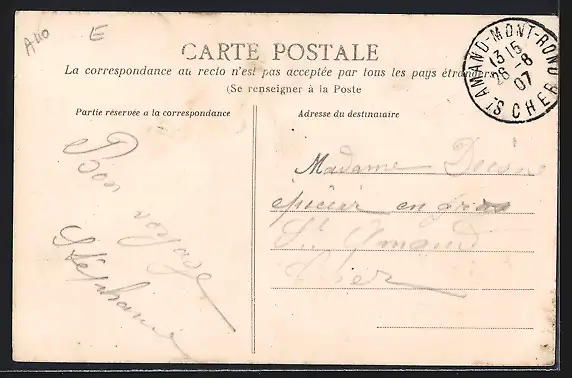 A40
E
CARTE POSTALE
La correspondance au recto n'est pas acceptée par tous les pays étrangers
(Se renseigner à la Poste
Partie réservée à la correspondance
Bon
voyage
Stéphanie
Adresse du destinataire
Madame
épicier en gros
St Amand
Cher
ST AMAND-MONT-ROND
1315
28-8
07
CHER